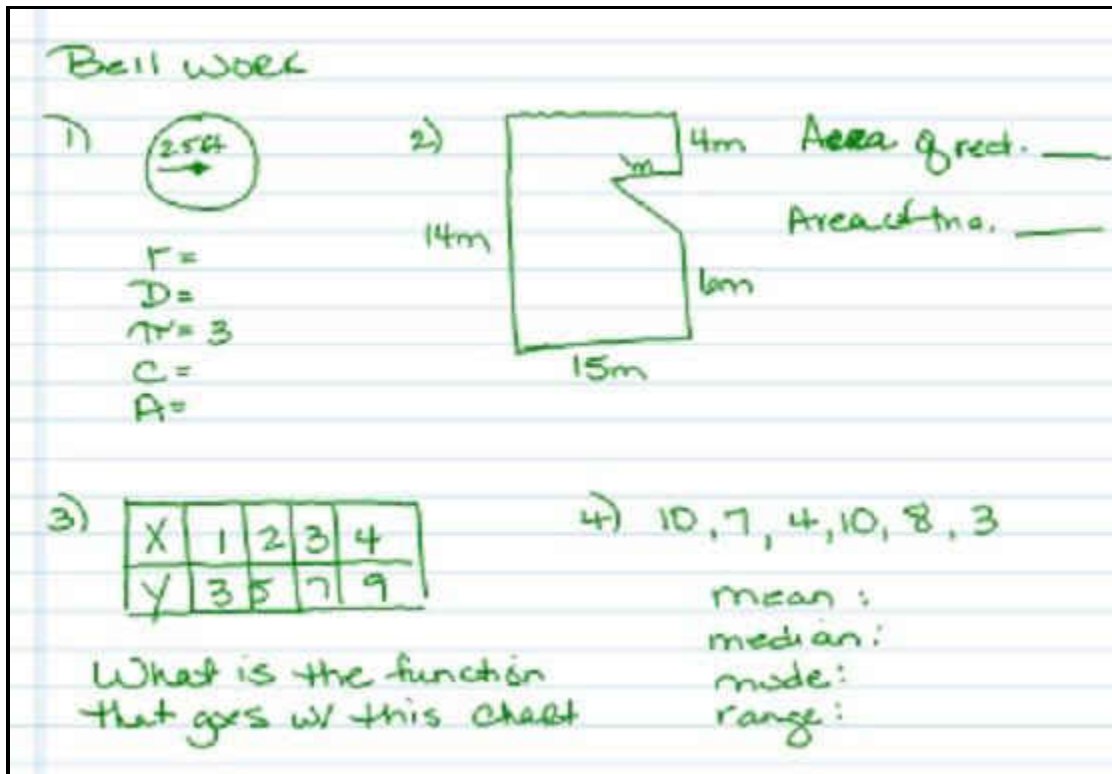 Bell Work
1) 25ft
r =
D =
π = 3
C =
A =
2) 14m 4m 6m 15m
Area of rect.
Area of tria.
3)
X 1 2 3 4
Y 3 5 7 9
What is the function
that goes w/ this chart
4) 10, 7, 4, 10, 8, 3
mean :
median :
mode :
range :